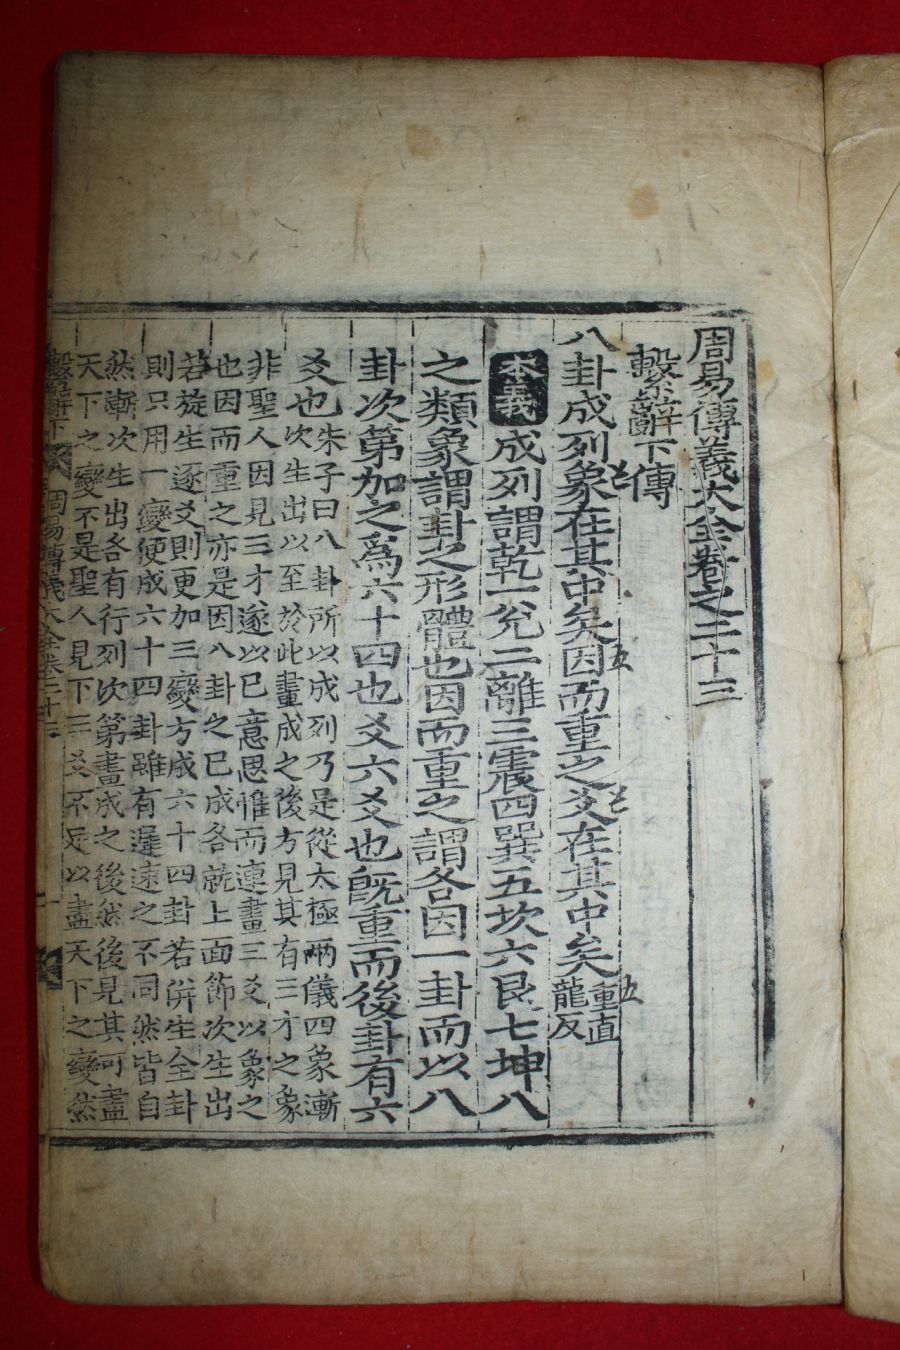 周易傳義大全卷之二十三
繫辭下傳
八卦成列象在其中矣因而重之爻在其中矣重直龍反
本義成列謂乾一兌二離三震四巽五坎六艮七坤八
之類象謂卦之形體也因而重之謂各因一卦而以八
卦次第加之爲六十四也爻六爻也旣重而後卦有六
爻也
朱子曰八卦所以成列乃是從太極兩儀四象漸
次生出以至於此畫成之後方見其有三才之象
非聖人因見三才遂以己意思惟而連畫三爻以象之
也因而重之亦是因八卦之已成各就上面節次生出
若旋生逐爻則更加三變方成六十四卦若倂生全卦
則只用一變便成六十四卦雖有遲速之不同然皆自
然漸次生出各有行列次第畫成之後然後見其可盡
天下之變不是聖人見下三爻不足以盡天下之變然
繫辭下 周易傳義大全卷二十三